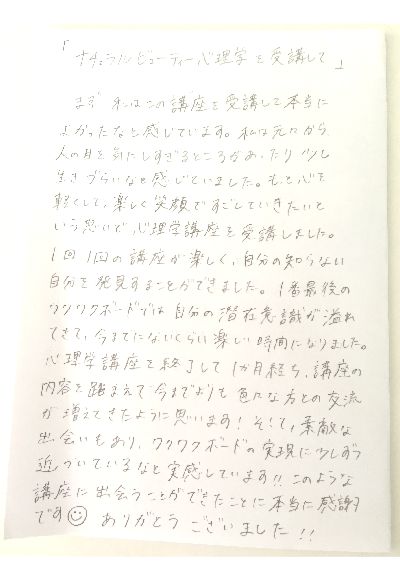 「ナチュラルビューティー心理学を受講して」
まず 私はこの講座を受講して本当に
よかったなと感じています。私は元々から
人の目を気にしすぎるところがあったり 少し
生きづらいなと感じていました。もっと心を
軽くして、楽しく笑顔ですごしていきたいと
いう思いで、心理学講座を受講しました。
1回1回の講座が楽しく、自分の知らない
自分を発見することができました。1番最後の
ワクワクボードでは自分の潜在意識が溢れ
てきて、今までにないくらい楽しい時間になりました。
心理学講座を終了して1か月経ち、講座の
内容を踏まえて今までよりも色んな方との交流
が増えてきたように思います!そして、素敵な
出会いもあり、ワクワクボードの実現に少しずつ
近づいているなと実感しています!!このような
講座に出会うことができたことに本当に感謝
です☺ ありがとうございました!!